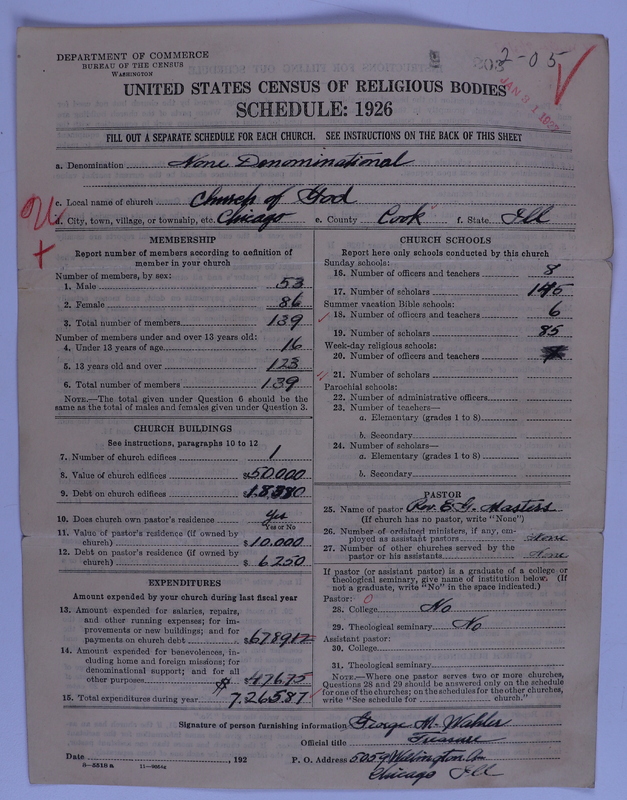 2-05
JAN 31 1927
DEPARTMENT OF COMMERCE
BUREAU OF THE CENSUS
WASHINGTON
UNITED STATES CENSUS OF RELIGIOUS BODIES
SCHEDULE: 1926
FILL OUT A SEPARATE SCHEDULE FOR EACH CHURCH. SEE INSTRUCTIONS ON THE BACK OF THIS SHEET
a. Denomination None Denominational
c. Local name of church Church of God
d. City, town, village, or township, etc. Chicago e. County Cook f. State Ill
MEMBERSHIP
Report number of members according to definition of
member in your church
Number of members, by sex:
1. Male 53
2. Female 86
3. Total number of members 139
Number of members under and over 13 years old:
4. Under 13 years of age 16
5. 13 years old and over 123
6. Total number of members 139
NOTE.—The total given under Question 6 should be
same as the total of males and females given under Question 3.
CHURCH BUILDINGS
See instructions, paragraphs 10 to 12
7. Number of church edifices 1
8. Value of church edifices $50,000
9. Debt on church edifices
10. Does church own pastor's residence Yes
Yes or No
11. Value of pastor's residence (if owned by
church) $10,000
12. Debt on pastor's residence (if owned by
church) $ 6250
EXPENDITURES
Amount expended by your church during last fiscal year
13. Amount expended for salaries, repairs,
and other running expenses; for im-
provements or new buildings; and for
payments on church debt $678912
14. Amount expended for benevolences, in-
cluding home and foreign missions; for
denominational support; and for all
other purposes $47675
15. Total expenditures during year $7,26587
CHURCH SCHOOLS
Report here only schools conducted by this church
Sunday schools:
16. Number of officers and teachers 8
17. Number of scholars 145
Summer vacation Bible schools:
18. Number of officers and teachers 6
19. Number of scholars 85
Week-day religious schools:
20. Number of officers and teachers
21. Number of scholars
Parochial schools:
22. Number of administrative officers
23. Number of teachers—
a. Elementary (grades 1 to 8)
b. Secondary
24. Number of scholars—
a. Elementary (grades 1 to 8)
b. Secondary
PASTOR
25. Name of pastor Rev. E. G. Masters
(If church has no pastor, write "None")
26. Number of ordained ministers, if any, em-
ployed as assistant pastors None
27. Number of other churches served by the
pastor or his assistants None
If pastor (or assistant pastor) is a graduate of a college or
theological seminary, give name of institution below. (If
not a graduate, write "No" in the space indicated.)
Pastor: 0
28. College No
29. Theological seminary No
Assistant pastor:
30. College
31. Theological seminary
NOTE.—Where one pastor serves two or more churches,
Questions 28 and 29 should be answered only on the schedule
for one of the churches; on the schedules for the other churches,
write "See schedule for church."
Signature of person furnishing information George M. Wahler
Official title Treasurer
Date , 192 P. O. Address 5059 Ave
Chicago Ill
8—5518 a